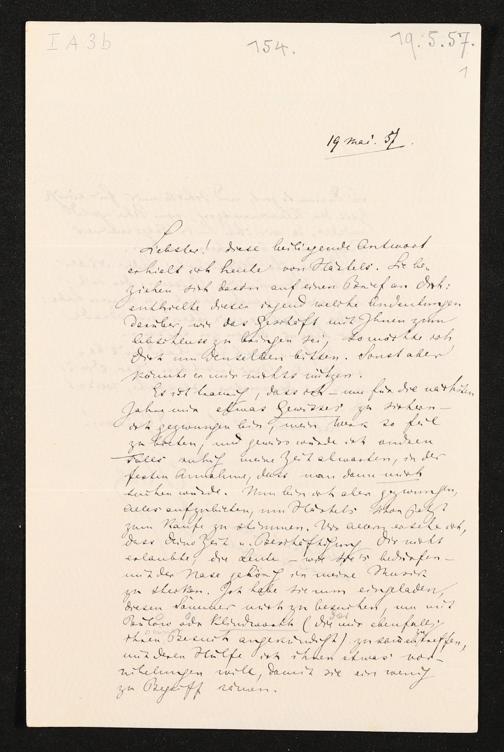 I A 3 b
154.
19.5.57.
1
19 Mai. 57.
Liebster! diese beiliegende Antwort
erhielt ich heute von Härtels. Sie be-
ziehen sich darin auf einen Brief an Dich:
enthielte dieser irgend welche Andeutungen
darüber, wie das Geschäft mit Ihnen zum
Abschluss zu bringen sei, so möchte ich
Dich um denselben bitten. Sonst aber
könnte er mir nichts nützen.
Es ist traurig, dass ich – um für die nächsten
Jahre mir etwas Gewisses zu sichern –
ich gezwungen bin, mein Werk so feil
zu bieten, und gewiss würde ich anderen
Falls ruhig meine Zeit abwarten, in der
festen Annahme, dass man dann mich
suchen würde. Nun bin ich aber gezwungen,
alles aufzubieten, um Härtels schon jetzt
zum Kaufe zu stimmen. Vor allem ersehe ich,
dass Deine Zeit u. Beschäftigung Dir nicht
erlaubte, die Leute – wie sie's bedürfen –
mit der Nase gehörig in meine Musik
zu stecken. Ich habe sie nun eingeladen,
diesen Sommer mich zu besuchen, um mit
Bülow oder Klindworth (die mir ebenfalls
ihren Besuch angekündigt) zusammenzutreffen,
mit deren Hülfe ich ihnen etwas vor-
nibelungen will, damit sie ein wenig
zu Begriff kämen.